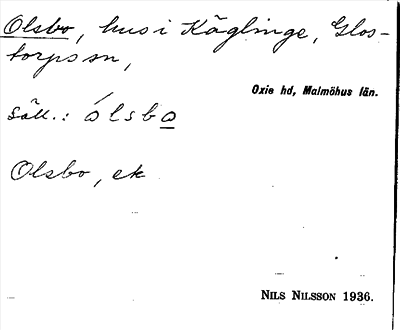 Olsbo, hus i Käglinge, Glos-
torps sn,
Oxie hd, Malmöhus län.
Säll.: ólsbo
Olsbo, ek
NILS NILSSON 1936.